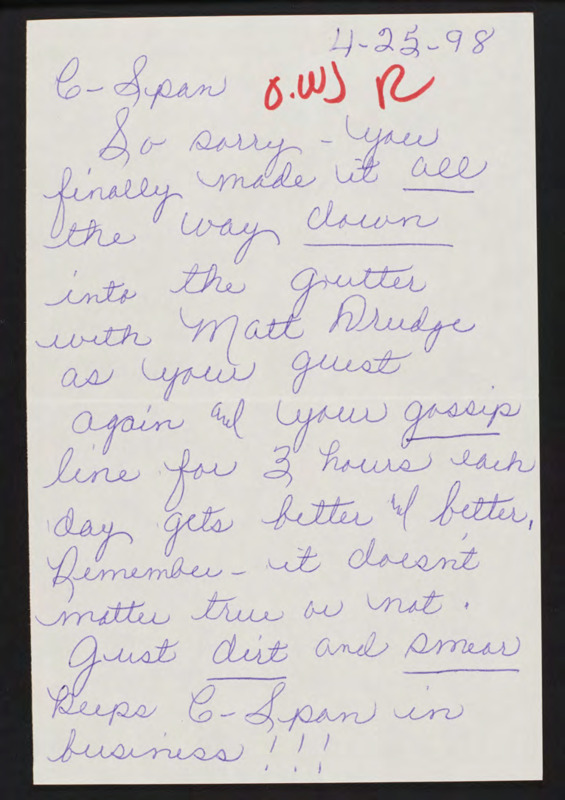 4-25-98
C-Span O.WJ R
So sorry - you
finally made it all
the way down
into the gutter
with Matt Drudge
as your guest
again and your gossip
line for 3 hours each
day gets better and better.
Remember - it doesn't
matter true or not.
Just dirt and smear
keeps C-Span in
business!!!